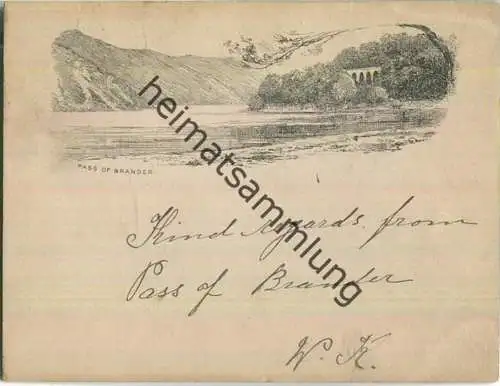 PASS OF BRANDER
heimatsammlung.de
Kind regards from
Pass of Brander
W. K.